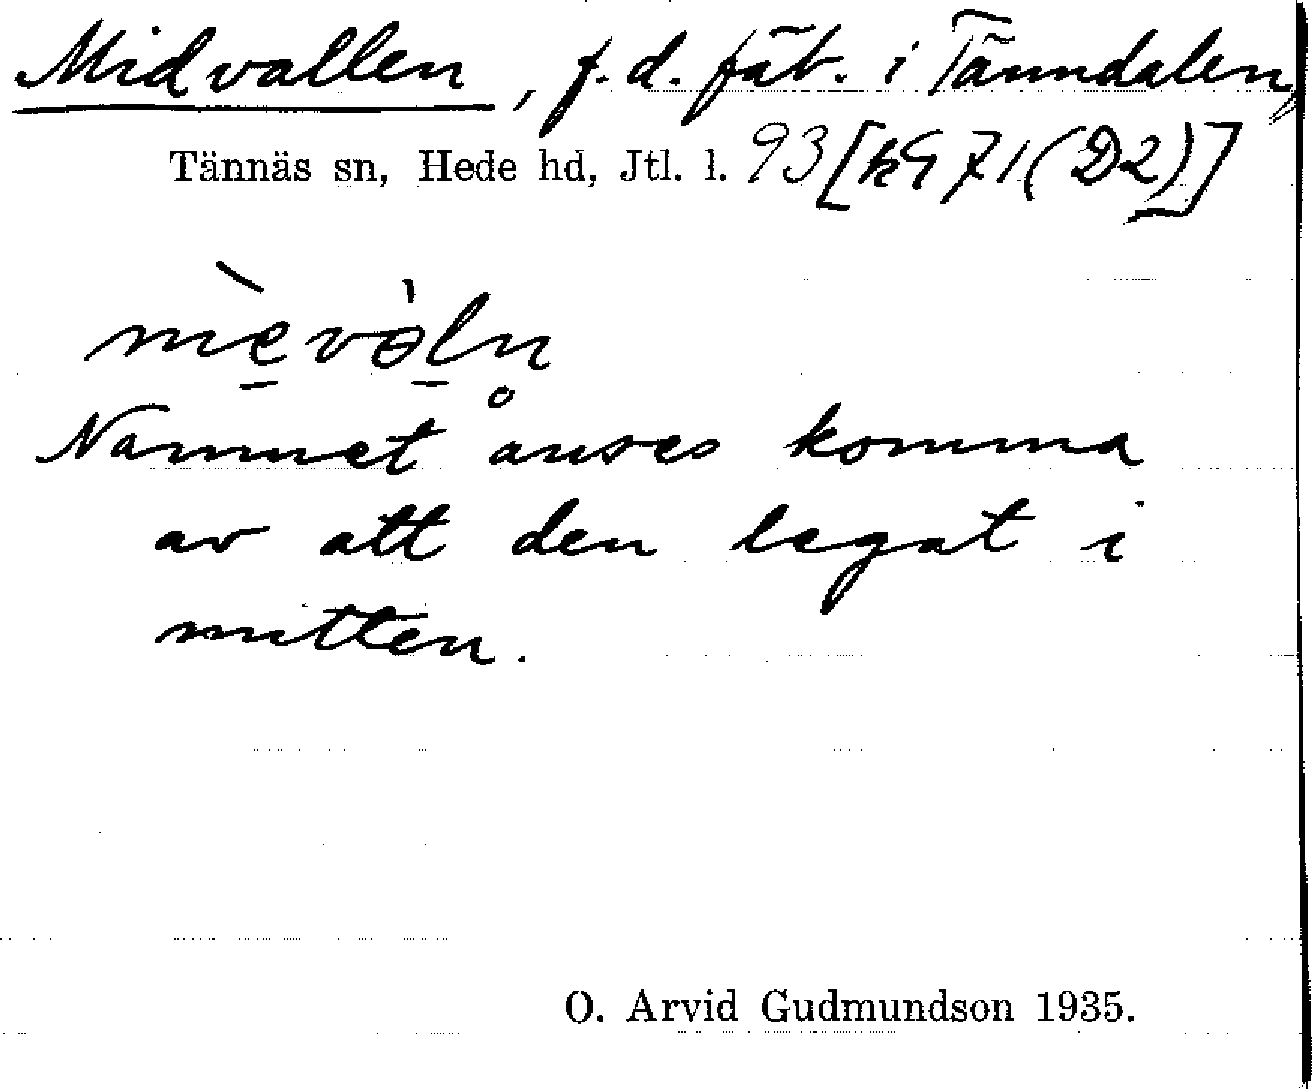 Midvallen, f.d. fäb. i Tänndalen,
Tännäs sn, Hede hd, Jtl. l. 93 [k971(D2)]
mè̱vò̱ln̥
Namnet anses komma
av att den legat i
mitten.
O. Arvid Gudmundson 1935.